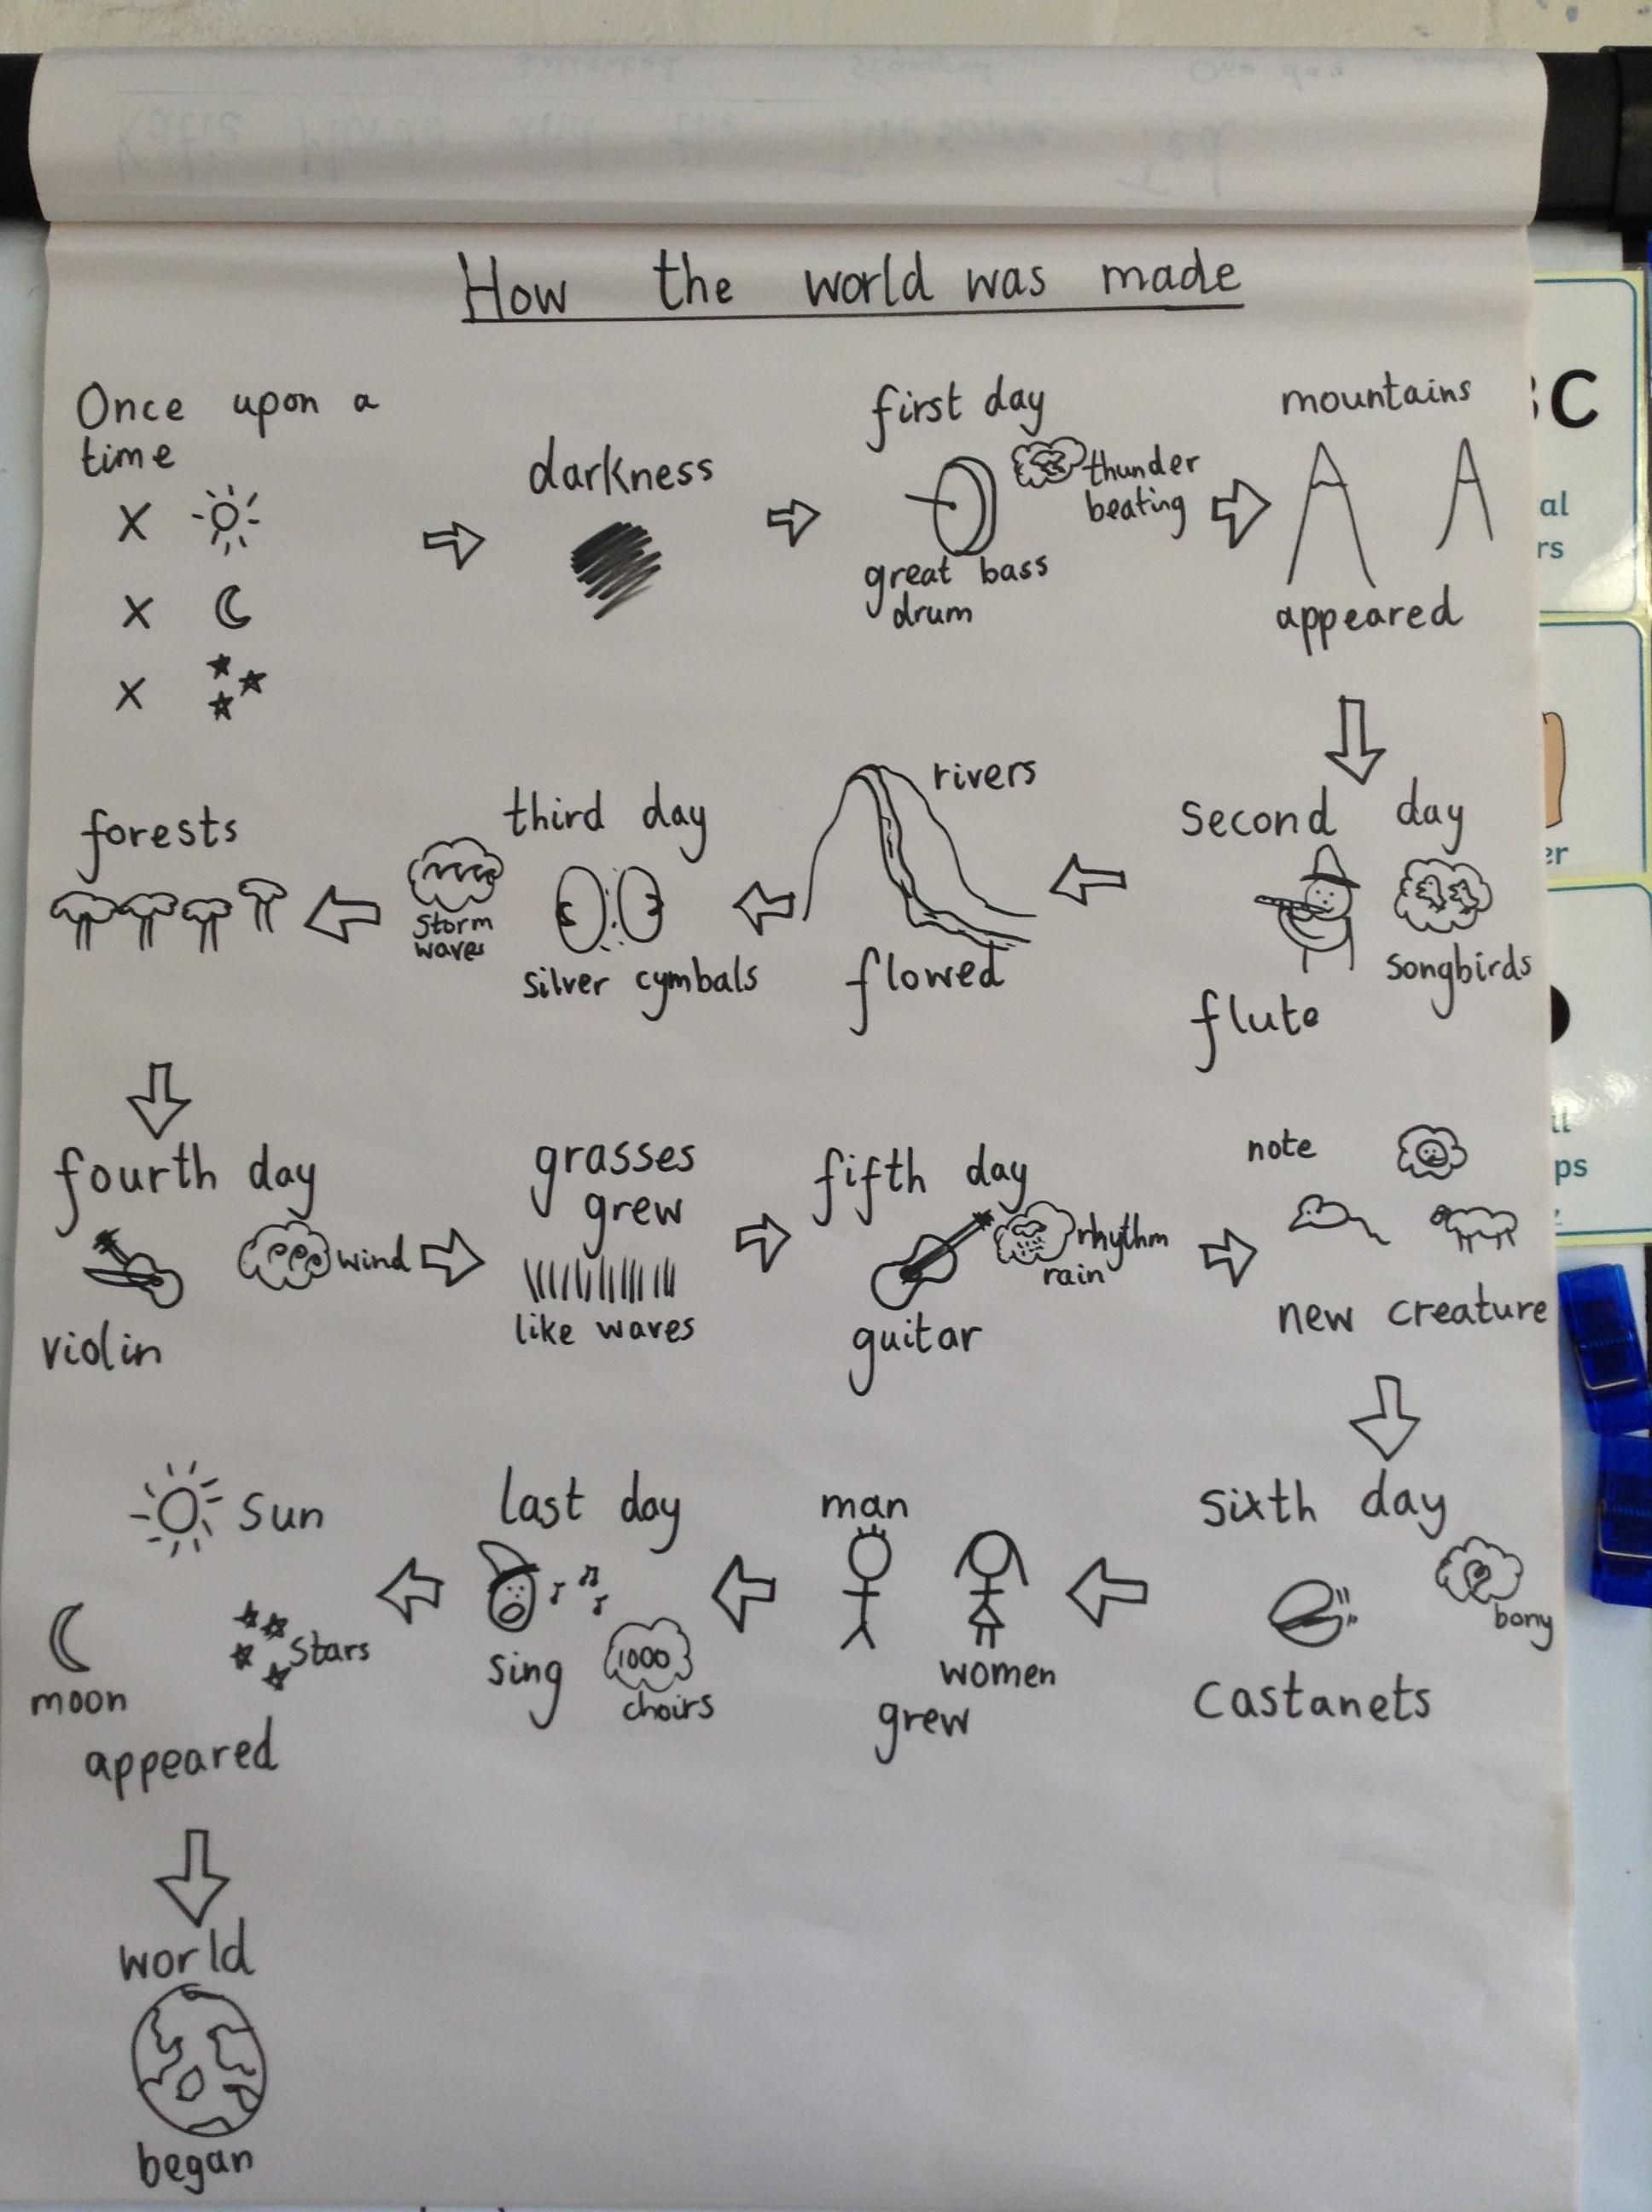 How the world was made
Once upon a
time
X
X
X
darkness
first day
thunder
beating
great bass
drum
mountains
appeared
second day
songbirds
flute
rivers
flowed
third day
silver cymbals
storm
waves
forests
fourth day
wind
violin
grasses
grew
like waves
fifth day
rhythm
rain
guitar
note
new creature
sixth day
bony
castanets
man
women
grew
last day
sing
1000
choirs
Sun
moon
stars
appeared
world
began
C
al
rs
er
ps